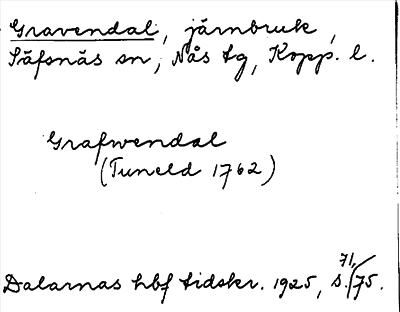 Gravendal, järnbruk,
Säfsnäs sn, Nås tg, Kopp. l.
Grafwendal
(Tuneld 1762)
Dalarnas hbf tidskr. 1925, s. 71, 75.